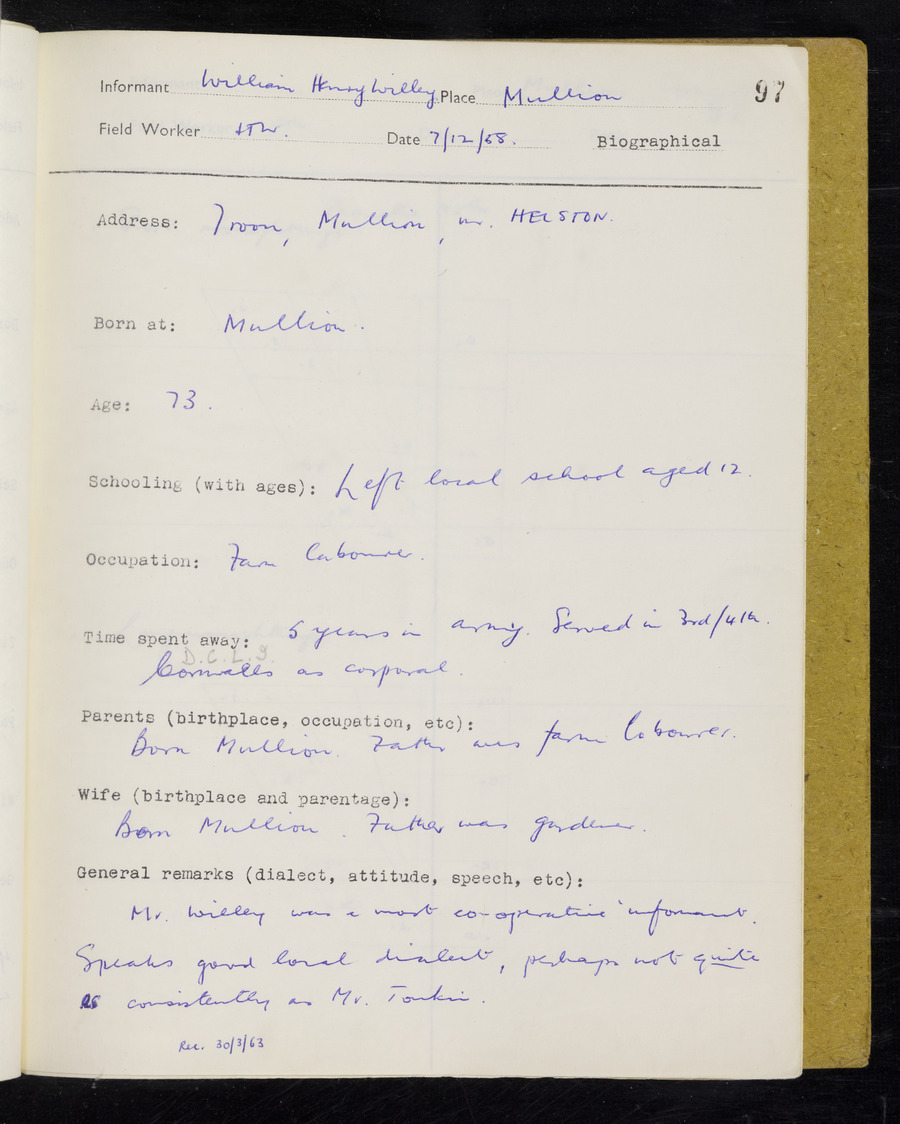 Informant William Henry Willey Place Mullion 97
Field Worker Date 7/12/58. Biographical
Address: Troon, Mullion, nr. HELSTON.
Born at: Mullion.
Age: 73.
Schooling (with ages): Left local school aged 12.
Occupation: Farm labourer.
Time spent away: 5 years in army. Served in 3rd/4th.
D.C.L.I.
Cornwalls as corporal.
Parents (birthplace, occupation, etc):
Born Mullion. Father was farm labourer.
Wife (birthplace and parentage):
Born Mullion. Father was gardener.
General remarks (dialect, attitude, speech, etc):
Mr. Willey was a most co-operative informant.
Speaks good local dialect, perhaps not quite
as consistently as Mr. Tonkin.
Rec. 30/3/63